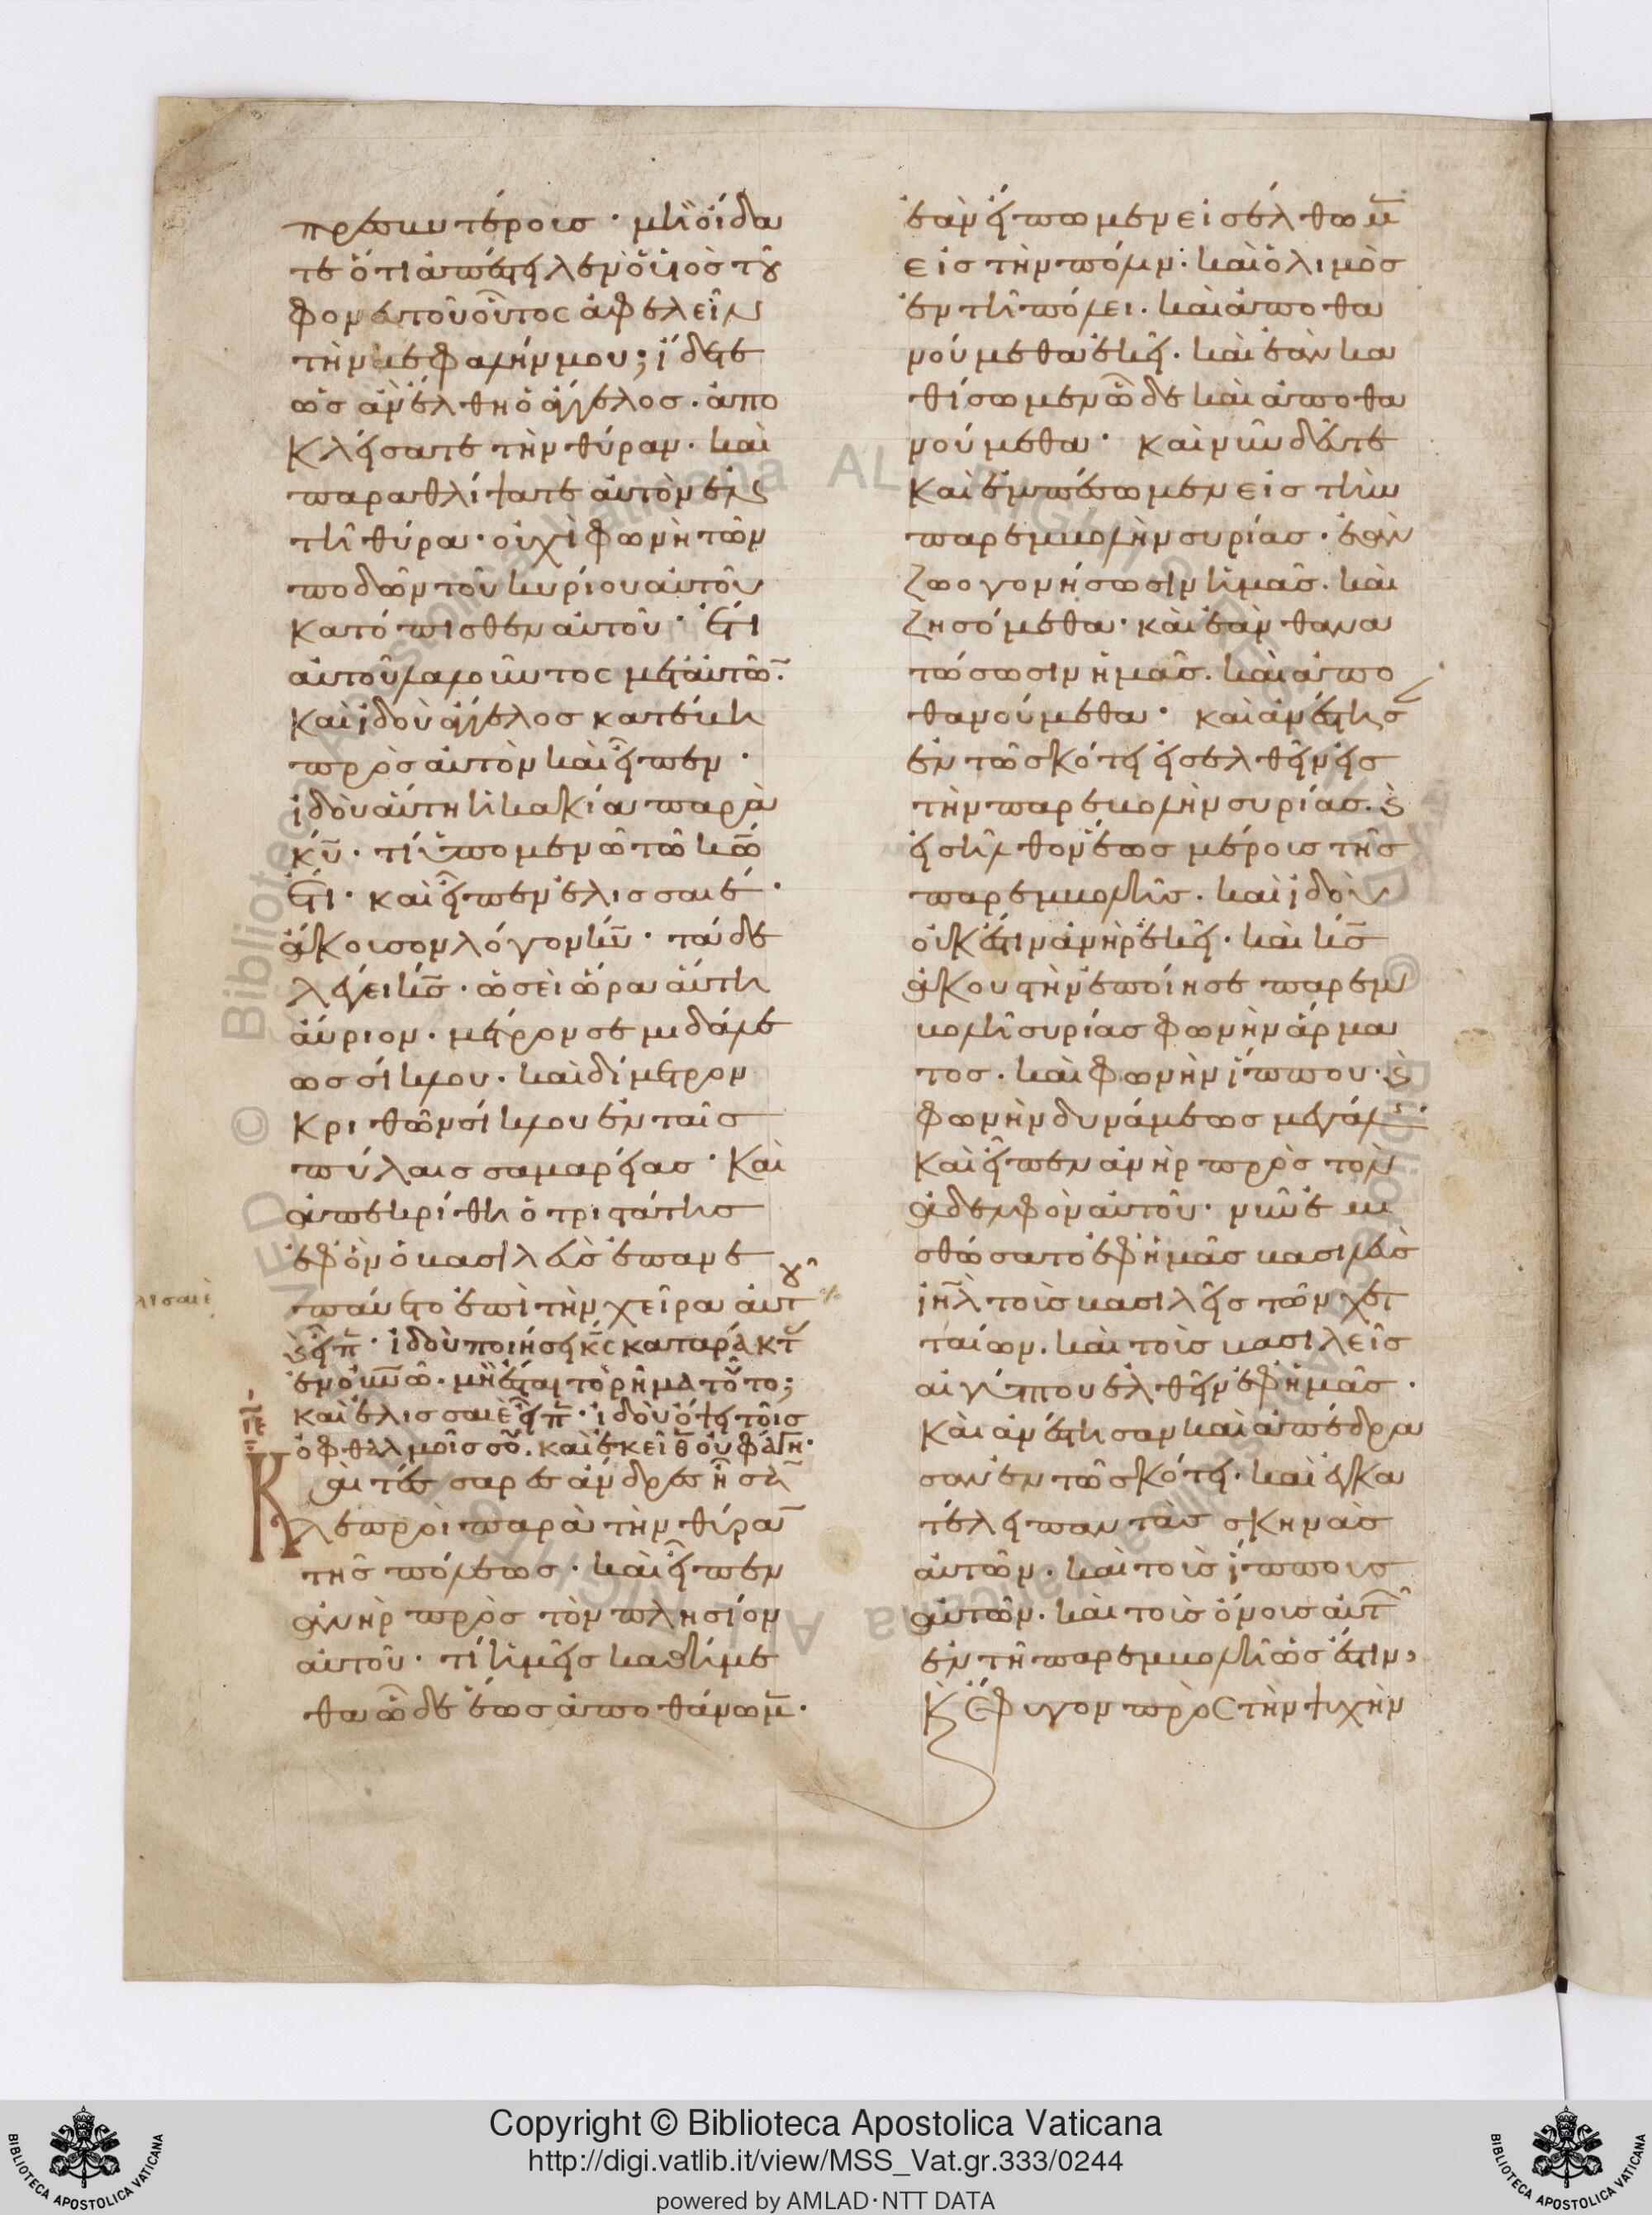 πρεσβυτέροις· μὴ οἴδα
τε ὅτι ἀπέστειλεν ὁ υἱὸς τοῦ
φονευτοῦ οὗτος ἀφελεῖν
τὴν κεφαλήν μου; ἴδετε
ὡς ἂν ἔλθη ὁ ἄγγελος. ἀπο
κλείσατε τὴν θύραν. καὶ
παραθλίψατε αὐτὸν ἐν
τῆ θύρα· οὐχὶ φωνὴ τῶν
ποδῶν τοῦ κυρίου αὐτοῦ
κατόπισθεν αὐτοῦ· ἔτι
αὐτοῦ λαλοῦντος μετ' αὐτῶ̄.
καὶ ἰδοὺ ἄγγελος κατέβη
πρὸς αὐτὸν καὶ εἶπεν·
ἰδοὺ αὕτη ἡ κακία παρὰ
κ̅υ̅· τί ὑπομενῶ τῶ κ̅ω̅
ἔτι· καὶ εἶπεν ἐλισσαιέ·
ἄκουσον λόγον κ̅υ̅· τάδε
λέγει κ̅ς̅· ὡσεὶ ὥρα αὕτη
αὔριον· μέτρον σεμιδάλε
ως σίκλου. καὶ δίμετρον
κριθῶν σίκλου ἐν ταῖς
πύλαις σαμαρείας· Καὶ
ἀπεκρίθη ὁ τριστάτης
ἐφ' ὃν ὁ βασιλεὺς ἐπανε
παύετο ἐπὶ τὴν χεῖρα αὐτοῦ
λισαιὲ
ϗ εἶπ̅· ἰδοὺ ποιήσει κ̅ς̅ καταράκτ̅
ἐν ο̅υ̅ν̅ω̅. μὴ ἔσται τὸ ρῆμα τοῦτο;
καὶ ἐλισσαιὲ εἶπ̅· ἰδοὺ ὄψει τοῖς
ὀφθαλμοῖς σοῦ. καὶ ἐκεῖθ̅ οὐ φάγη·
Καὶ τέσσαρες ἄνδρες ἦσα̅
λεπροὶ παρὰ τὴν θύρα̅
τῆς πόλεως· καὶ εἶπεν
ἀνὴρ πρὸς τὸν πλησίον
αὐτοῦ· τί ἡμεῖς καθήμε
θα ὧδε ἕως ἀποθάνωμ̅·
ἐὰν εἴπωμεν εἰσέλθωμ̅
εἰς τὴν πόλιν· καὶ ὁ λιμὸς
ἐν τῆ πόλει. καὶ ἀποθα
νούμεθα ἐκεῖ. καὶ ἐὰν κα
θίσωμεν ὧδε καὶ ἀποθα
νούμεθα· καὶ νῦν δεῦτε
καὶ ἐμπέσωμεν εἰς τὴν
παρεμβολὴν συρίας. ἐὰν
ζωογονήσωσιν ἡμᾶς. καὶ
ζησόμεθα· καὶ ἐὰν θανα
τώσωσιν ἡμᾶς. καὶ ἀπο
θανούμεθα· καὶ ἀνέστησ
ἐν τῶ σκότει εἰσελθεῖν εἰς
τὴν παρεμβολὴν συρίας. ϗ
εἰσῆλθον ἕως μέρους τῆς
παρεμβολῆς. καὶ ἰδοὺ
οὐκ ἔστιν ἀνὴρ ἐκεῖ. καὶ κ̅ς̅
ἀκουστὴν ἐποίησε παρεμ
βολῆ συρίας φωνὴν ἅρμα
τος. καὶ φωνὴν ἵππου. ϗ
φωνὴν δυνάμεως μεγάλης·
καὶ εἶπεν ἀνὴρ πρὸς τὸν
ἀδελφὸν αὐτοῦ· νῦν ἐμι
σθώσατο ἐφ' ἡμᾶς βασιλεὺς
ι̅η̅λ̅ τοὺς βασιλεῖς τῶν χετ
ταίων. καὶ τοὺς βασιλεῖς
αἰγύπτου ἐλθεῖν ἐφ' ἡμᾶς·
Καὶ ἀνέστησαν καὶ ἀπέδρα
σαν ἐν τῶ σκότει. καὶ ἐγκα
τέλειπαν τὰς σκηνὰς
αὐτῶν. καὶ τοὺς ἵππους
αὐτῶν. καὶ τοὺς ὄνους αὐτῶν
ἐν τῆ παρεμβολῆ ὡς ἔστιν,
Κ̀ ἔφυγον πρὸς τὴν ψυχὴν
Copyright © Biblioteca Apostolica Vaticana
http://digi.vatlib.it/view/MSS_Vat.gr.333/0244
powered by AMLAD·NTT DATA
BIBLIOTECA APOSTOLICA VATICANA
BIBLIOTECA APOSTOLICA VATICANA